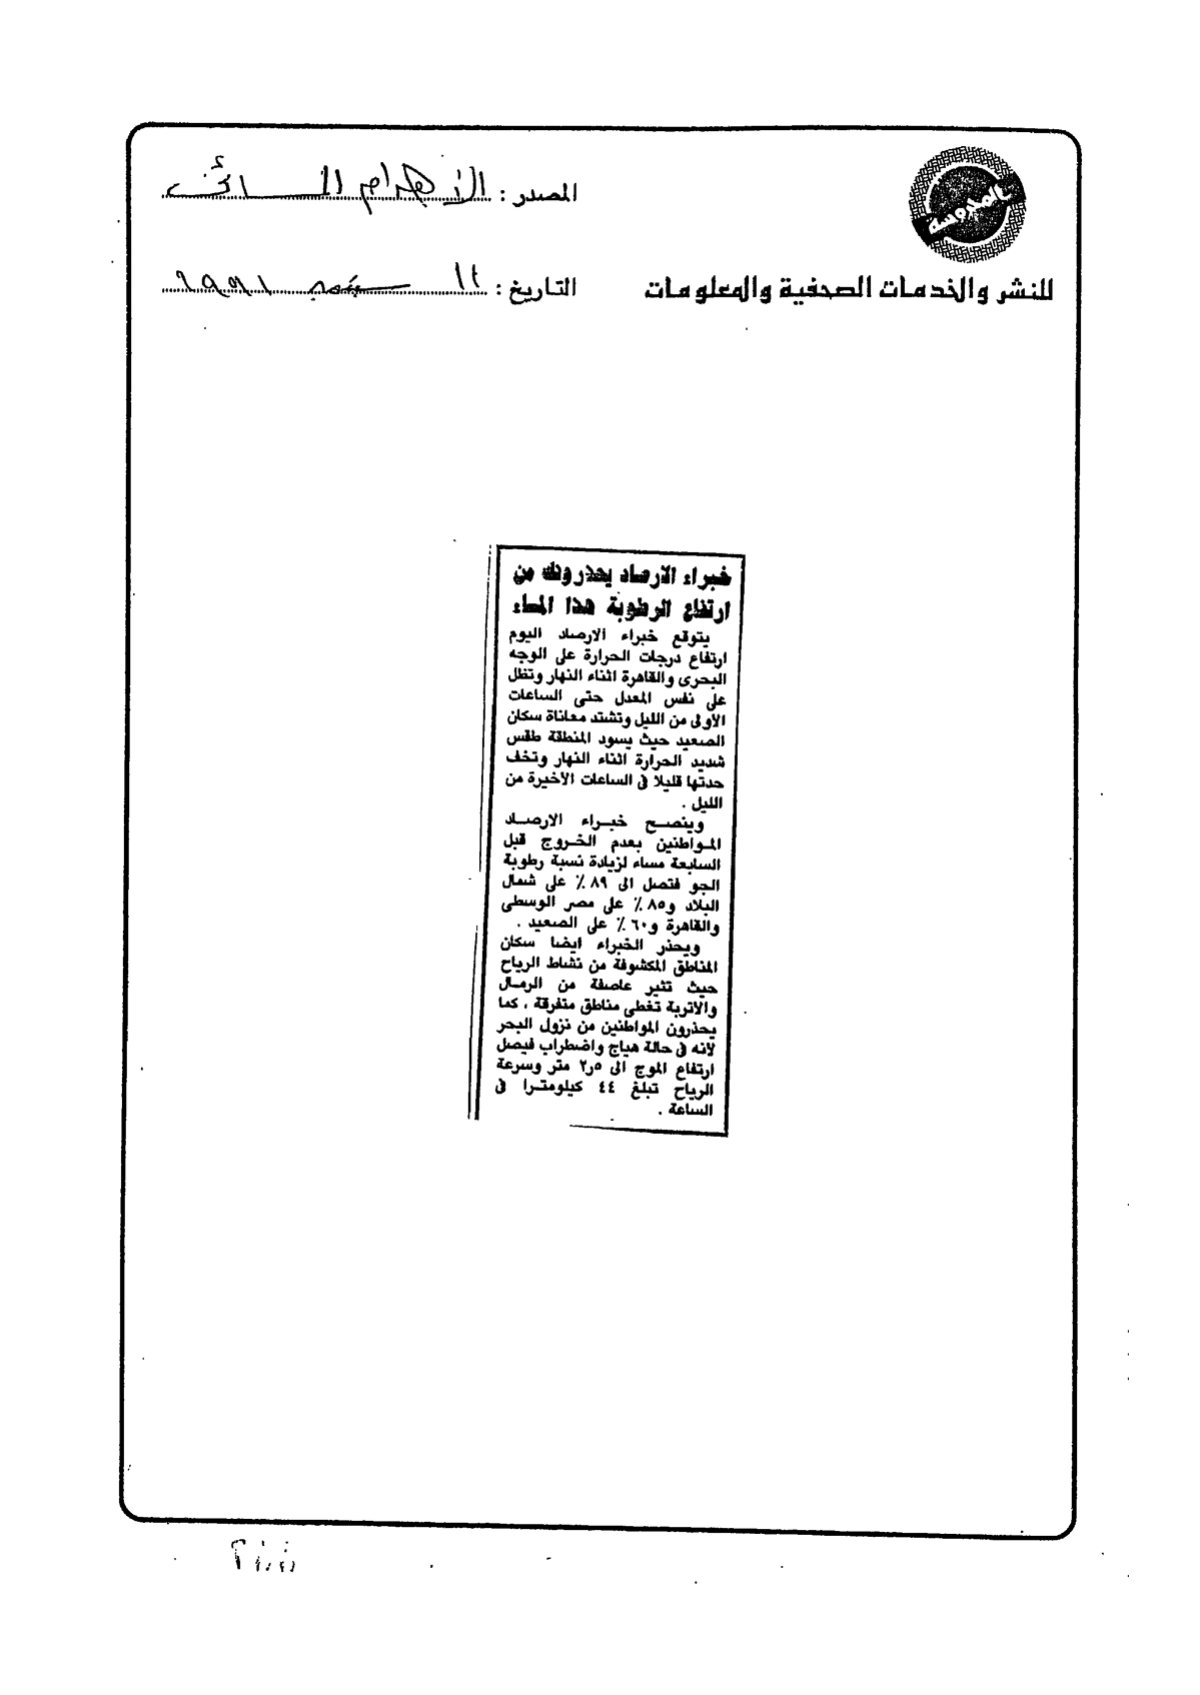 المحروسة
المصدر : الأهرام المسائى
للنشر والخدمات الصحفية والمعلومات
التاريخ : سبتمبر
خبراء الارصاد يحذرونك من
ارتفاع الرطوبة هذا المساء
يتوقع خبراء الارصاد اليوم
ارتفاع درجات الحرارة على الوجه
البحرى والقاهرة اثناء النهار وتظل
على نفس المعدل حتى الساعات
الأولى من الليل وتشتد معاناة سكان
الصعيد حيث يسود المنطقة طقس
شديد الحرارة اثناء النهار وتخف
حدتها قليلا فى الساعات الأخيرة من
الليل .
وينصح خبراء الارصاد
المواطنين بعدم الخروج قبل
السابعة مساء لزيادة نسبة رطوبة
الجو فتصل الى ٨٩ ٪ على شمال
البلاد و٨٥ ٪ على مصر الوسطى
والقاهرة و٦٠ ٪ على الصعيد .
ويحذر الخبراء ايضا سكان
المناطق المكشوفة من نشاط الرياح
حيث تثير عاصفة من الرمال
والاتربة تغطى مناطق متفرقة ، كما
يحذرون المواطنين من نزول البحر
لانه فى حالة هياج واضطراب فيصل
ارتفاع الموج الى ٢٫٥ متر وسرعة
الرياح تبلغ ٤٤ كيلومترا فى
الساعة .